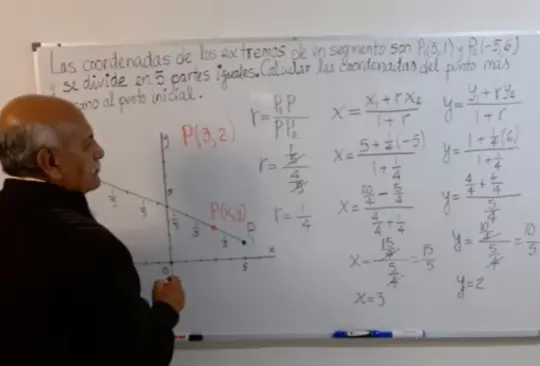 Las coordenadas de los extremos de un segmento son P₁(5,1) y P₂(-5,6)
y se divide en 5 partes iguales. Calcular las coordenadas del punto más
al punto inicial.
P(3,2)
P(x,y)
y
x
0
5
1/5
1/5
1/5
1/5
r = P₁P / PP₂
r = (1/5) / (4/5)
r = 1/4
x = (x₁ + r x₂) / (1 + r)
x = (5 + 1/4(-5)) / (1 + 1/4)
x = (20/4 - 5/4) / (4/4 + 1/4)
x = (15/4) / (5/4) = 15/5
x = 3
y = (y₁ + r y₂) / (1 + r)
y = (1 + 1/4(6)) / (1 + 1/4)
y = (4/4 + 6/4) / (5/4)
y = (10/4) / (5/4) = 10/5
y = 2